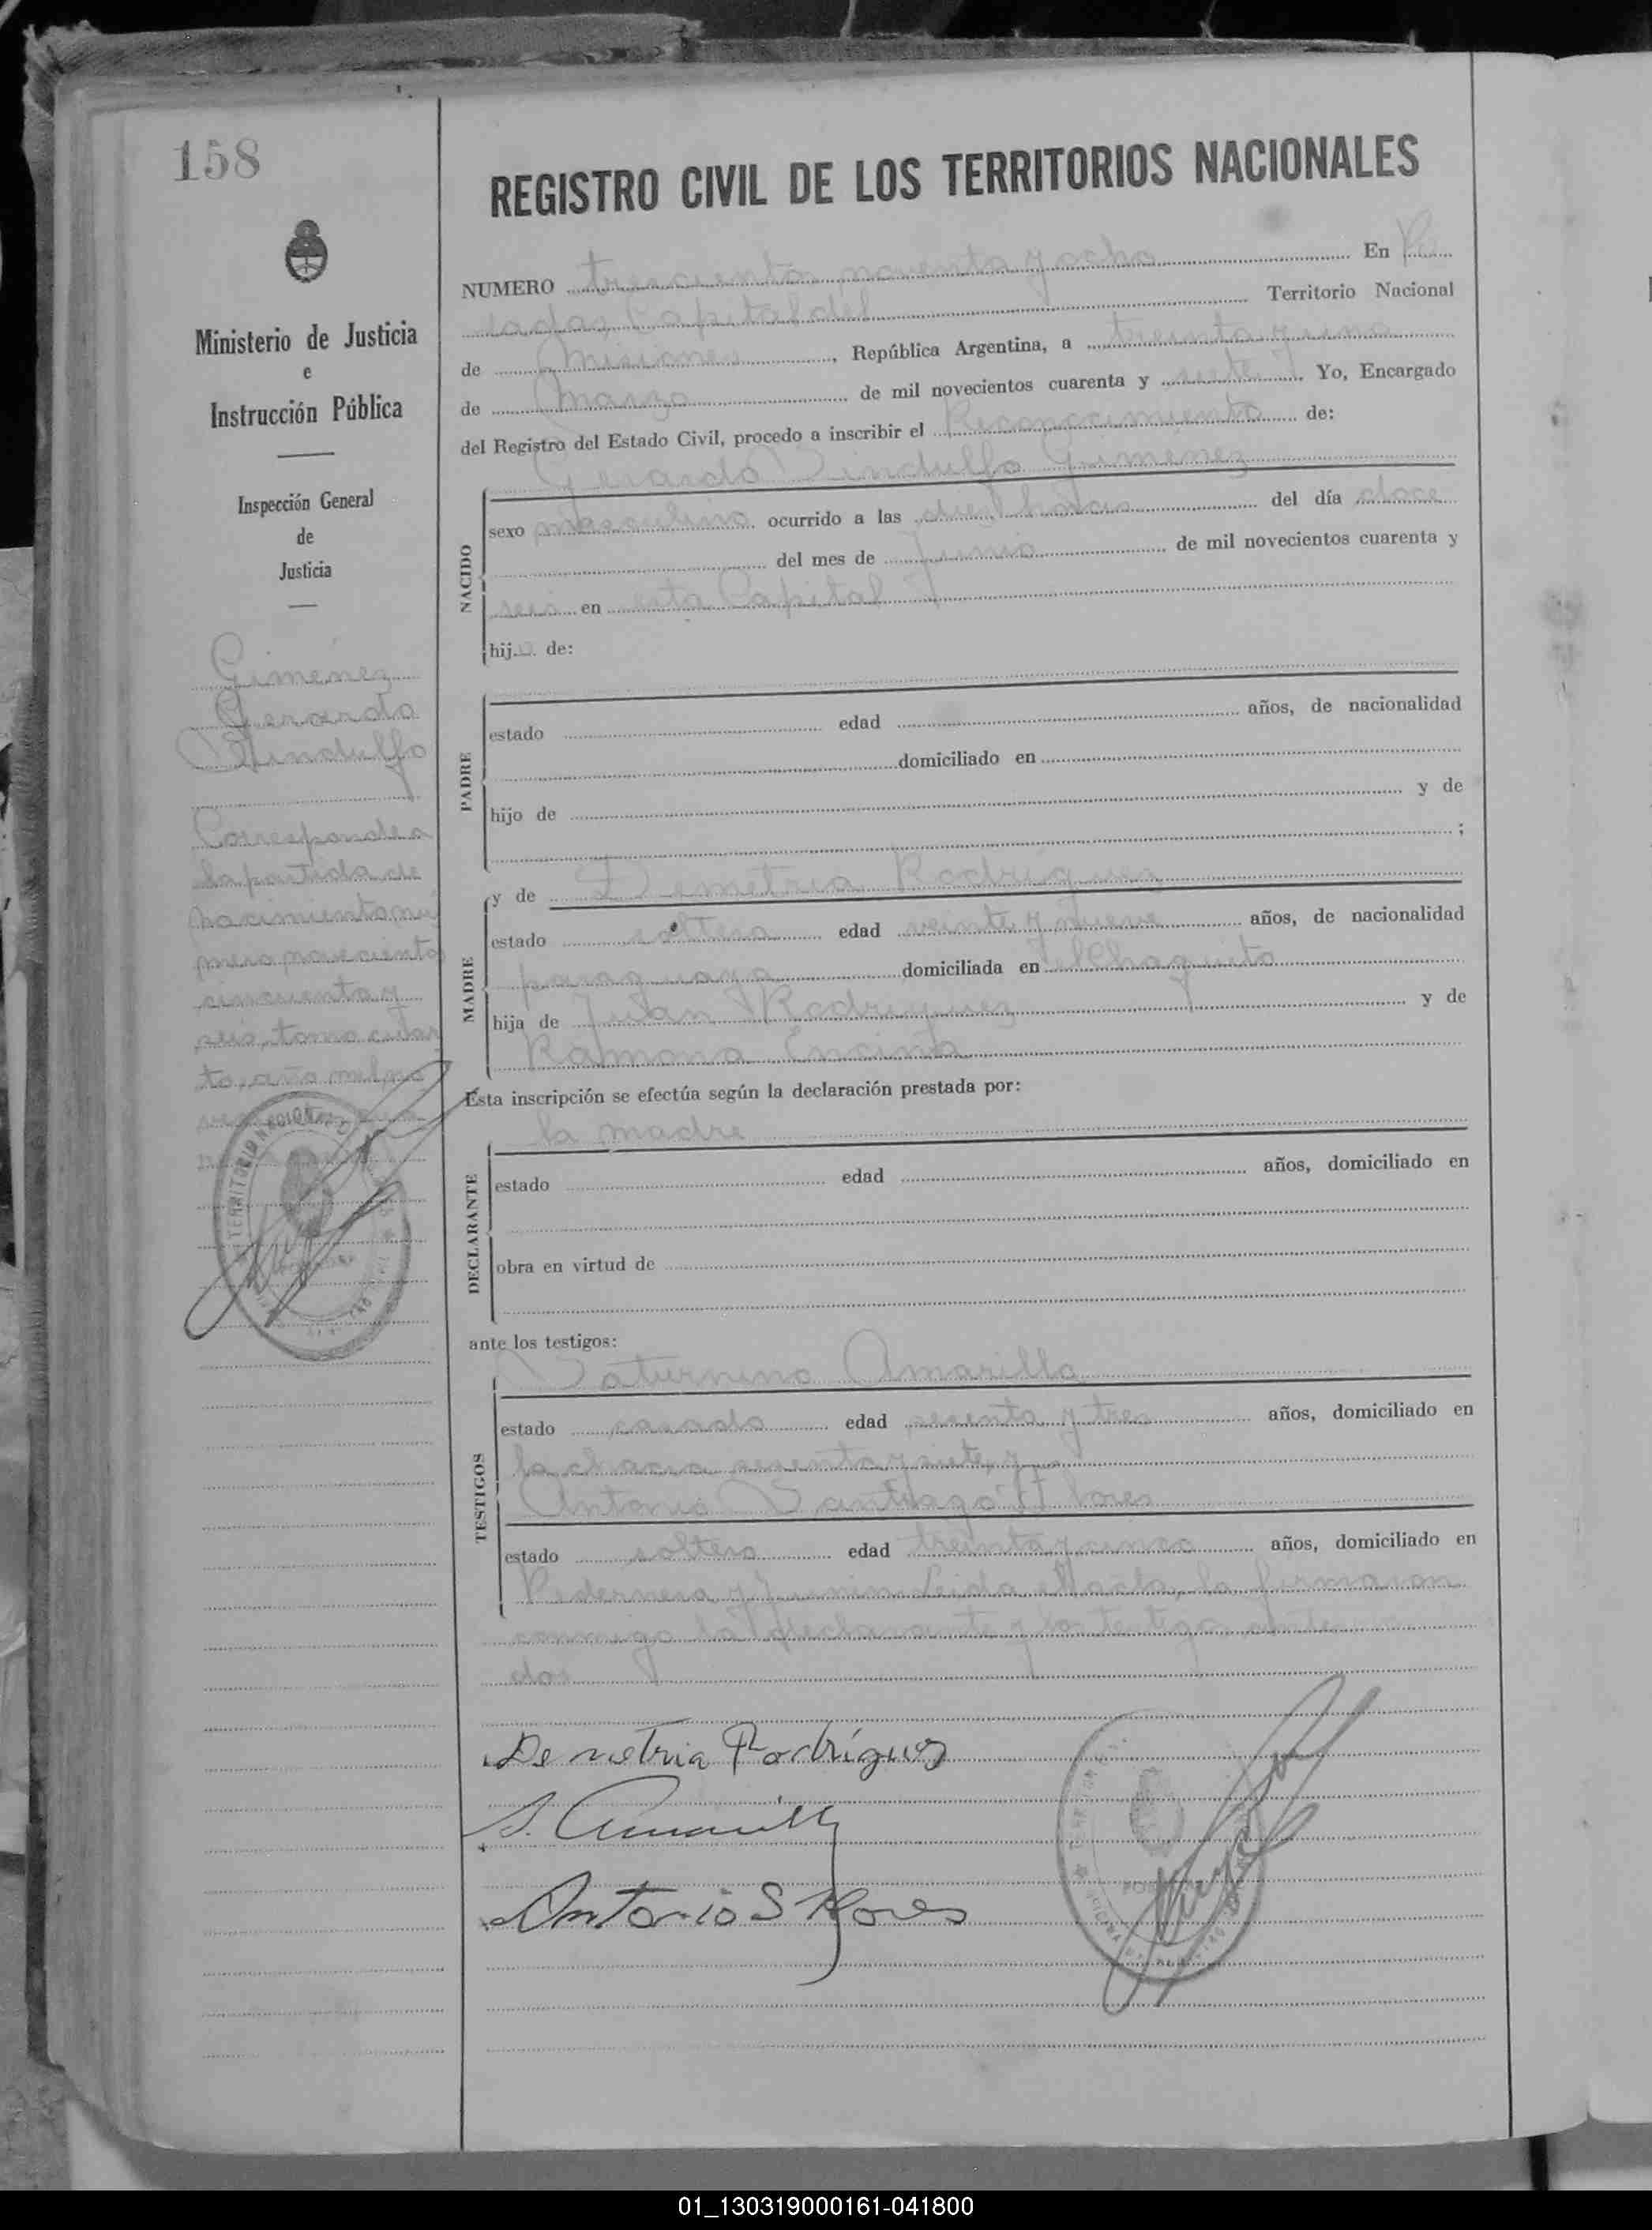 158
Ministerio de Justicia
e
Instrucción Pública
Inspección General
de
Justicia
Gimenez
Gerardo
Sindulfo
Corresponde a
la partida de
nacimiento nú
mero novecientos
cincuenta y
seis, tomo cuar
to, año mil no
REGISTRO CIVIL DE LOS TERRITORIOS NACIONALES
NUMERO trescientos noventa y ocho En Po
sadas, Capital del Territorio Nacional
de Misiones, República Argentina, a treinta y uno
de Marzo de mil novecientos cuarenta y siete Yo, Encargado
del Registro del Estado Civil, procedo a inscribir el Reconocimiento de:
Gerardo Sindulfo Gimenez
NACIDO
sexo masculino ocurrido a las diez horas del día doce
del mes de Junio de mil novecientos cuarenta y
seis en esta Capital
hijo de:
PADRE
estado edad años, de nacionalidad
domiciliado en
hijo de y de
;
MADRE
y de Demetria Rodriguez
estado soltera edad veinte y nueve años, de nacionalidad
paraguaya domiciliada en El Chaquito
hija de Juan Rodriguez y de
Ramona Encina
Esta inscripción se efectúa según la declaración prestada por:
la madre
DECLARANTE
estado edad años, domiciliado en
obra en virtud de
ante los testigos:
TESTIGOS
Saturnino Amarilla
estado casado edad sesenta y tres años, domiciliado en
la chacra sesenta y siete, y
Antonio Santiago Flores
estado soltero edad treinta y cinco años, domiciliado en
Pedernera y Junin. Leida el acta, la firmaron
conmigo la declarante y los testigos
dos
Demetria Rodríguez
S. Amarilla
Antonio S Flores
01_130319000161-041800